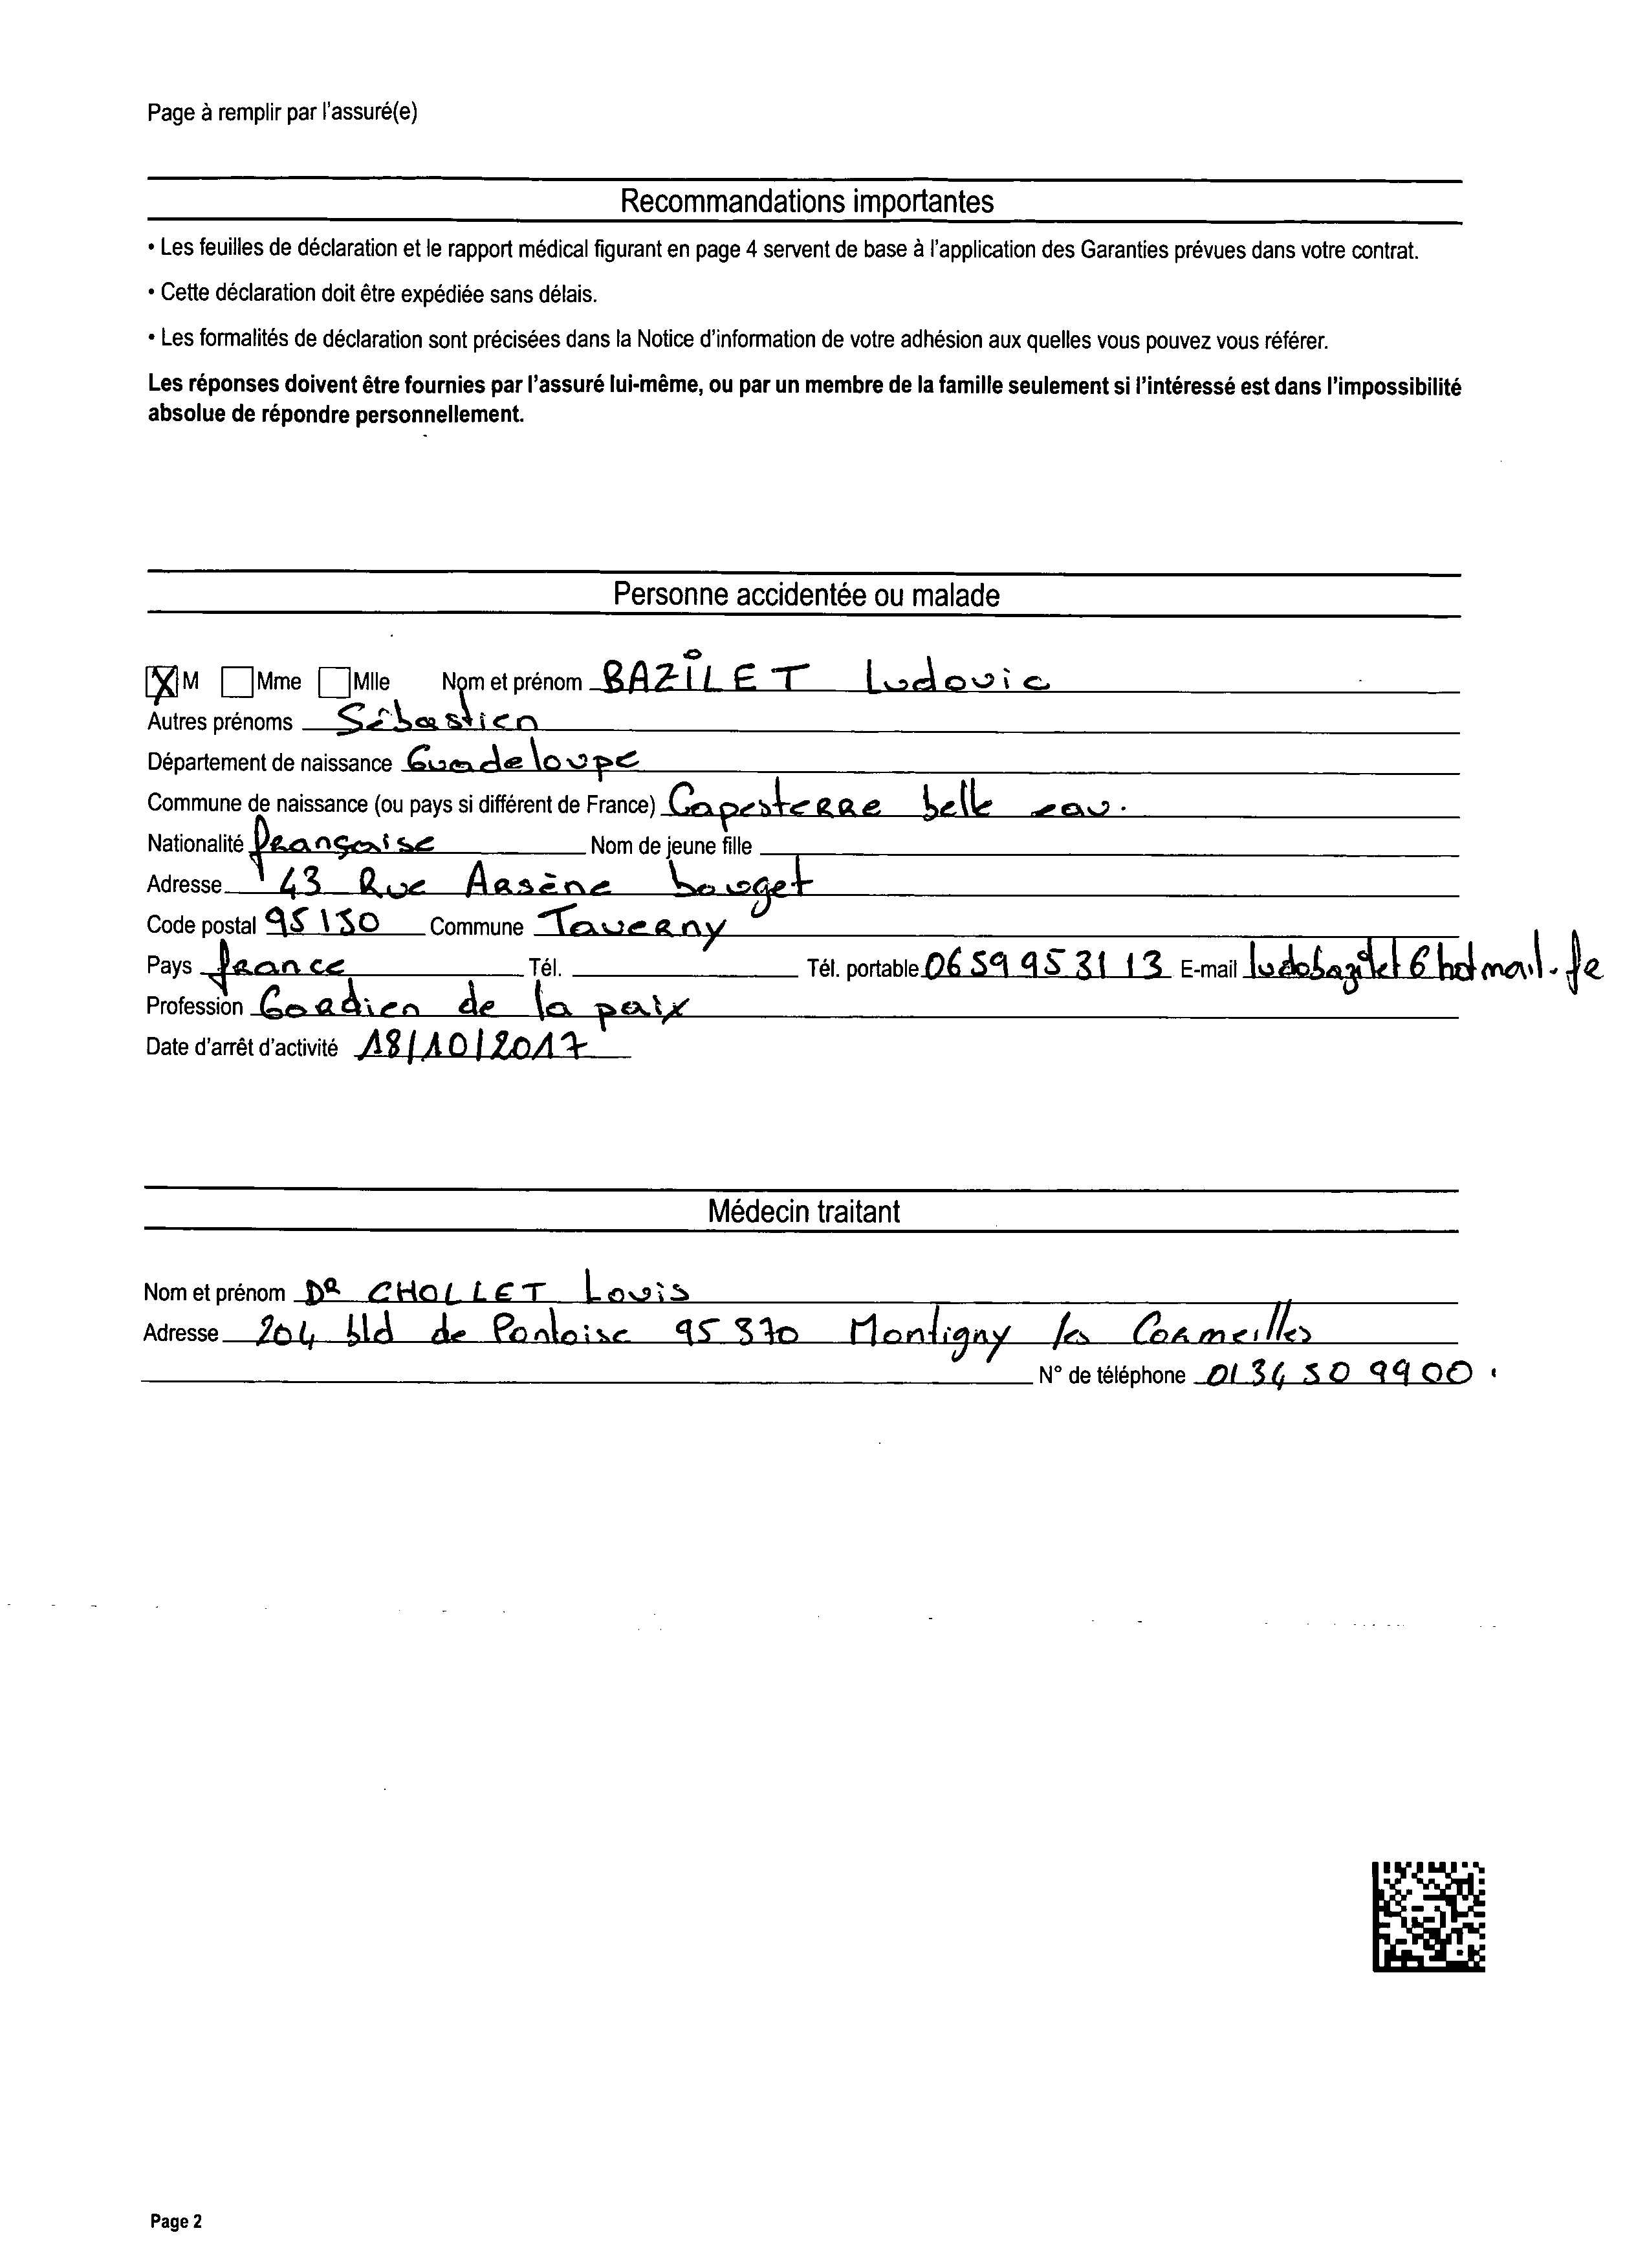 Page à remplir par l'assuré(e)
Recommandations importantes
• Les feuilles de déclaration et le rapport médical figurant en page 4 servent de base à l'application des Garanties prévues dans votre contrat.
• Cette déclaration doit être expédiée sans délais.
• Les formalités de déclaration sont précisées dans la Notice d'information de votre adhésion aux quelles vous pouvez vous référer.
Les réponses doivent être fournies par l'assuré lui-même, ou par un membre de la famille seulement si l'intéressé est dans l'impossibilité
absolue de répondre personnellement.
Personne accidentée ou malade
M Mme Mlle Nom et prénom BAZILET Ludovic
Autres prénoms Sébastien
Département de naissance Guadeloupe
Commune de naissance (ou pays si différent de France) Capesterre belle eau.
Nationalité française Nom de jeune fille
Adresse 43 Rue Arsène bouget
Code postal 95150 Commune Taverny
Pays france Tél. Tél. portable 06 59 95 31 13 E-mail ludobazilet@hotmail.fr
Profession Gardien de la paix
Date d'arrêt d'activité 18/10/2017
Médecin traitant
Nom et prénom DR CHOLLET Louis
Adresse 204 bld de Pontoise 95370 Montigny les Cormeilles
N° de téléphone 01 34 50 99 00
Page 2